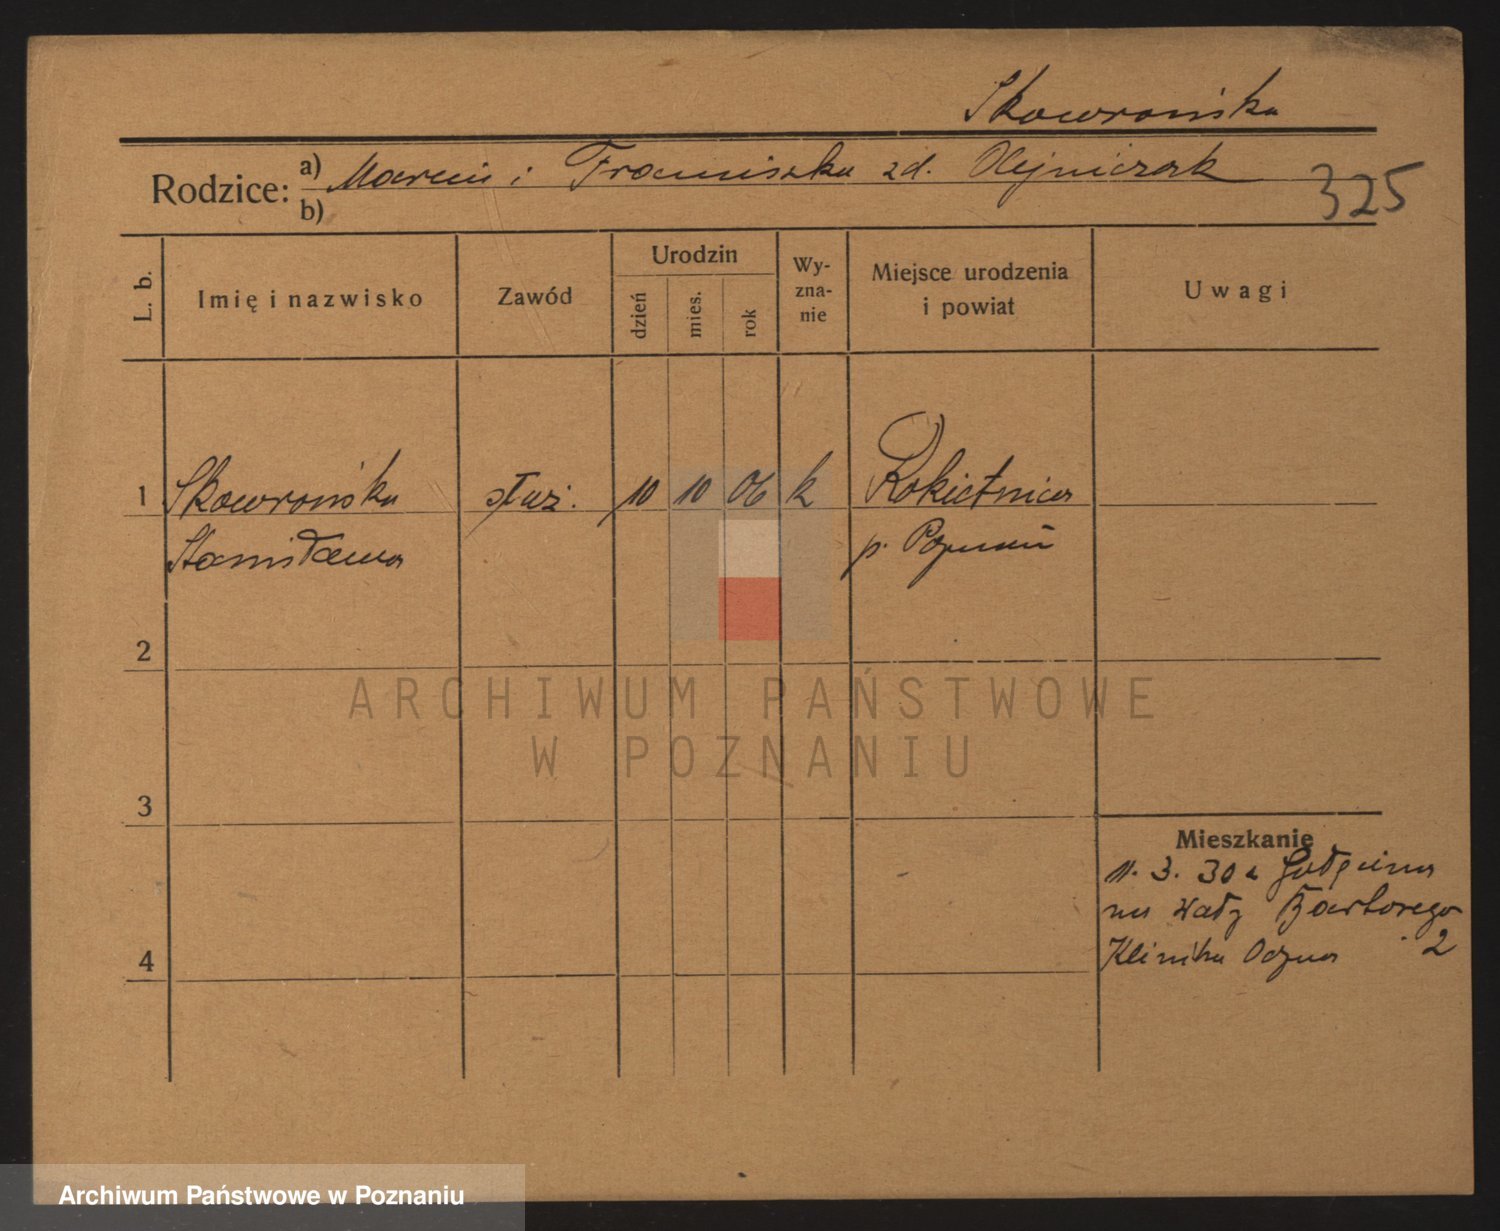 Skowrońska
Rodzice: a) Marcin i Franciszka zd. Olejniczak
b)
325
L. b.
Imię i nazwisko
Zawód
Urodzin
dzień
mies.
rok
Wy-
zna-
nie
Miejsce urodzenia
i powiat
Uwagi
1 Skowrońska służ. 10 10 06 k Rokietnica
Stanisława p. Poznań
2
ARCHIWUM PAŃSTWOWE
W POZNANIU
3
Mieszkanie
11. 3. 30 z
na Wały Batorego
4 Klinika Oczna 2
Archiwum Państwowe w Poznaniu